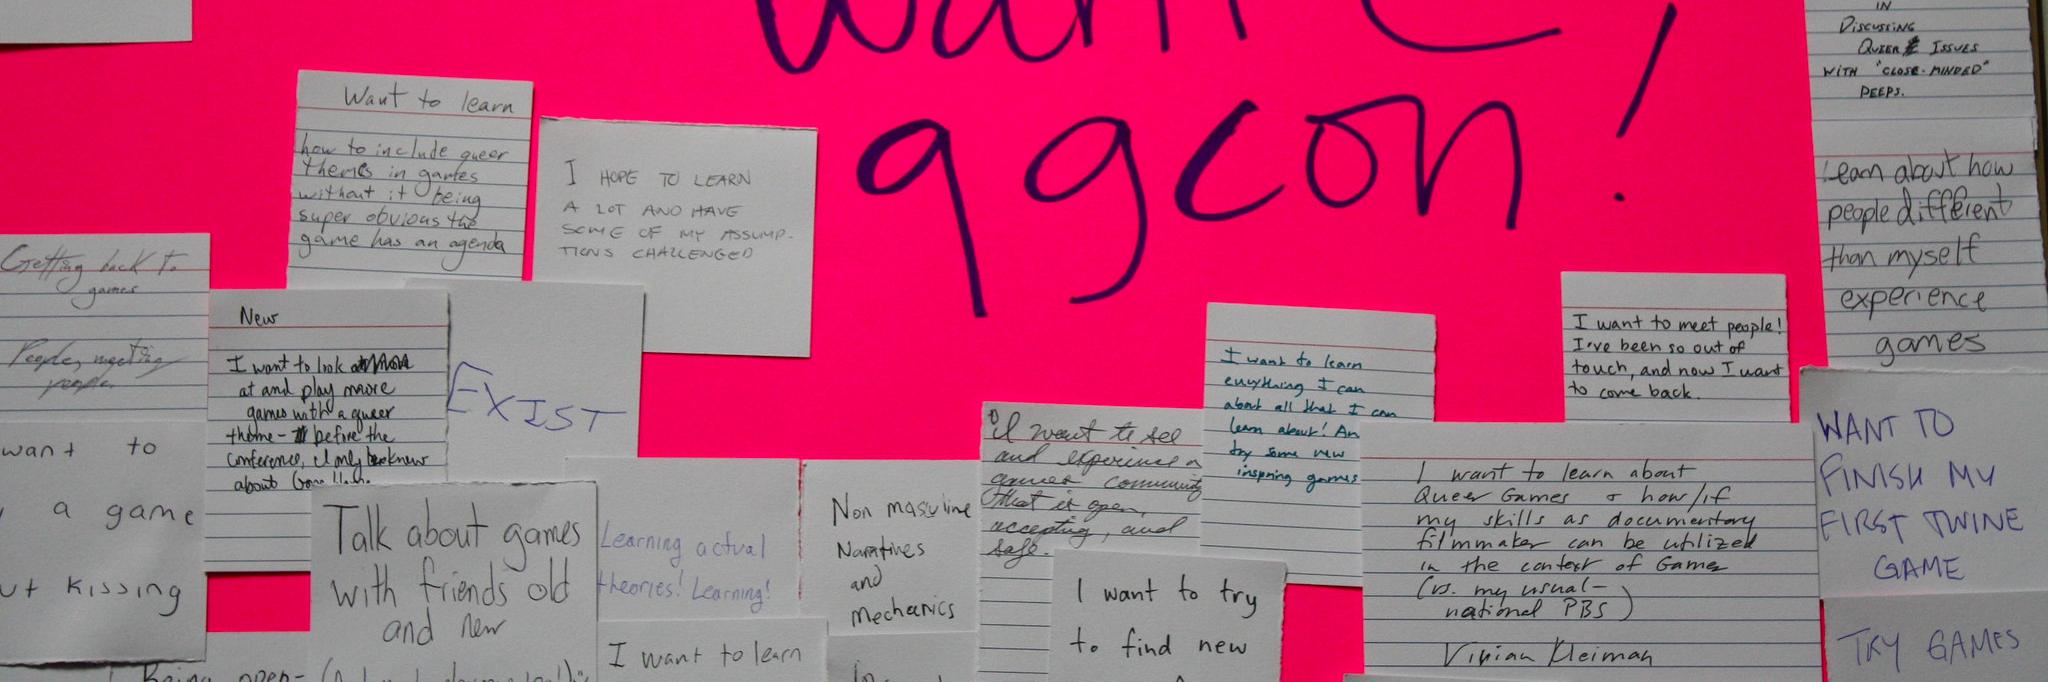 qgcon!
Want to learn
how to include queer
themes in games
without it being
super obvious the
game has an agenda
I HOPE TO LEARN
A LOT AND HAVE
SOME OF MY ASSUMP-
TIONS CHALLENGED
IN
DISCUSSING
QUEER ISSUES
WITH "CLOSE-MINDED"
PEEPS.
Learn about how
people different
than myself
experience
games
Getting back to
games
People, meeting
people
New
I want to look more
at and play more
games with a queer
theme - before the
conference, I only knew
about
EXIST
I want to meet people!
I've been so out of
touch, and now I want
to come back.
I want to learn
everything I can
about all that I can
learn about! An
try some new
inspiring games
I want to see
and experience a
games community
that is open,
accepting, and
safe.
want to
a game
kissing
Talk about games
with friends old
and new
Learning actual
theories! Learning!
Non masculine
Narratives
and
Mechanics
I want to learn about
Queer Games & how/if
my skills as documentary
filmmaker can be utilized
in the context of Games
(vs. my usual -
national PBS)
Vivian Kleiman
WANT TO
FINISH MY
FIRST TWINE
GAME
TRY GAMES
I want to try
to find new
I want to learn
Being open-